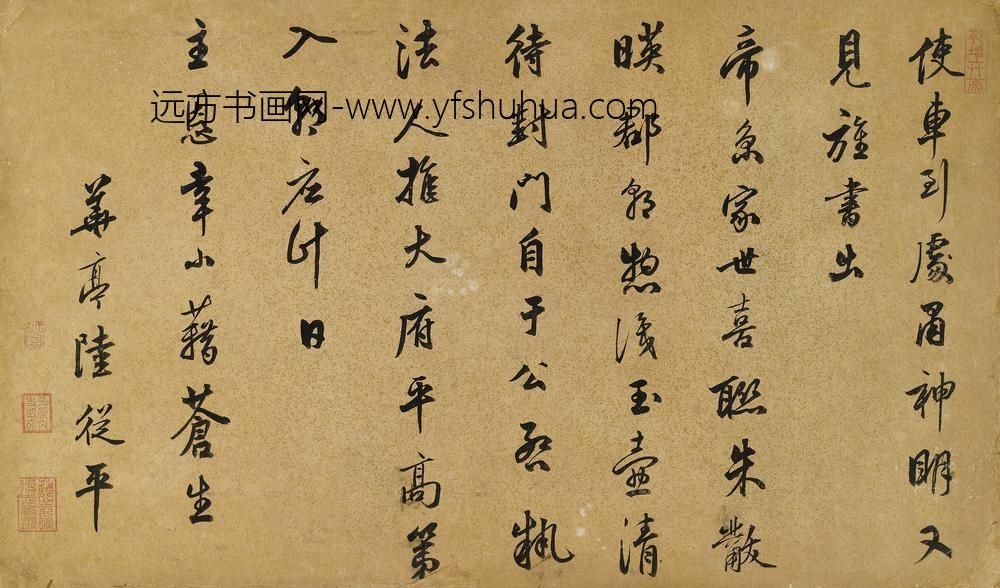 使車到處神明又
見旌書出
帝京家世喜聯朱黻
暎郡朝惣識玉壺清
待封門自于公啓執
法人推大府平高第
入朝應計日
主恩藉蒼生
華亭陸從平
远方书画网-www.yfshuhua.com